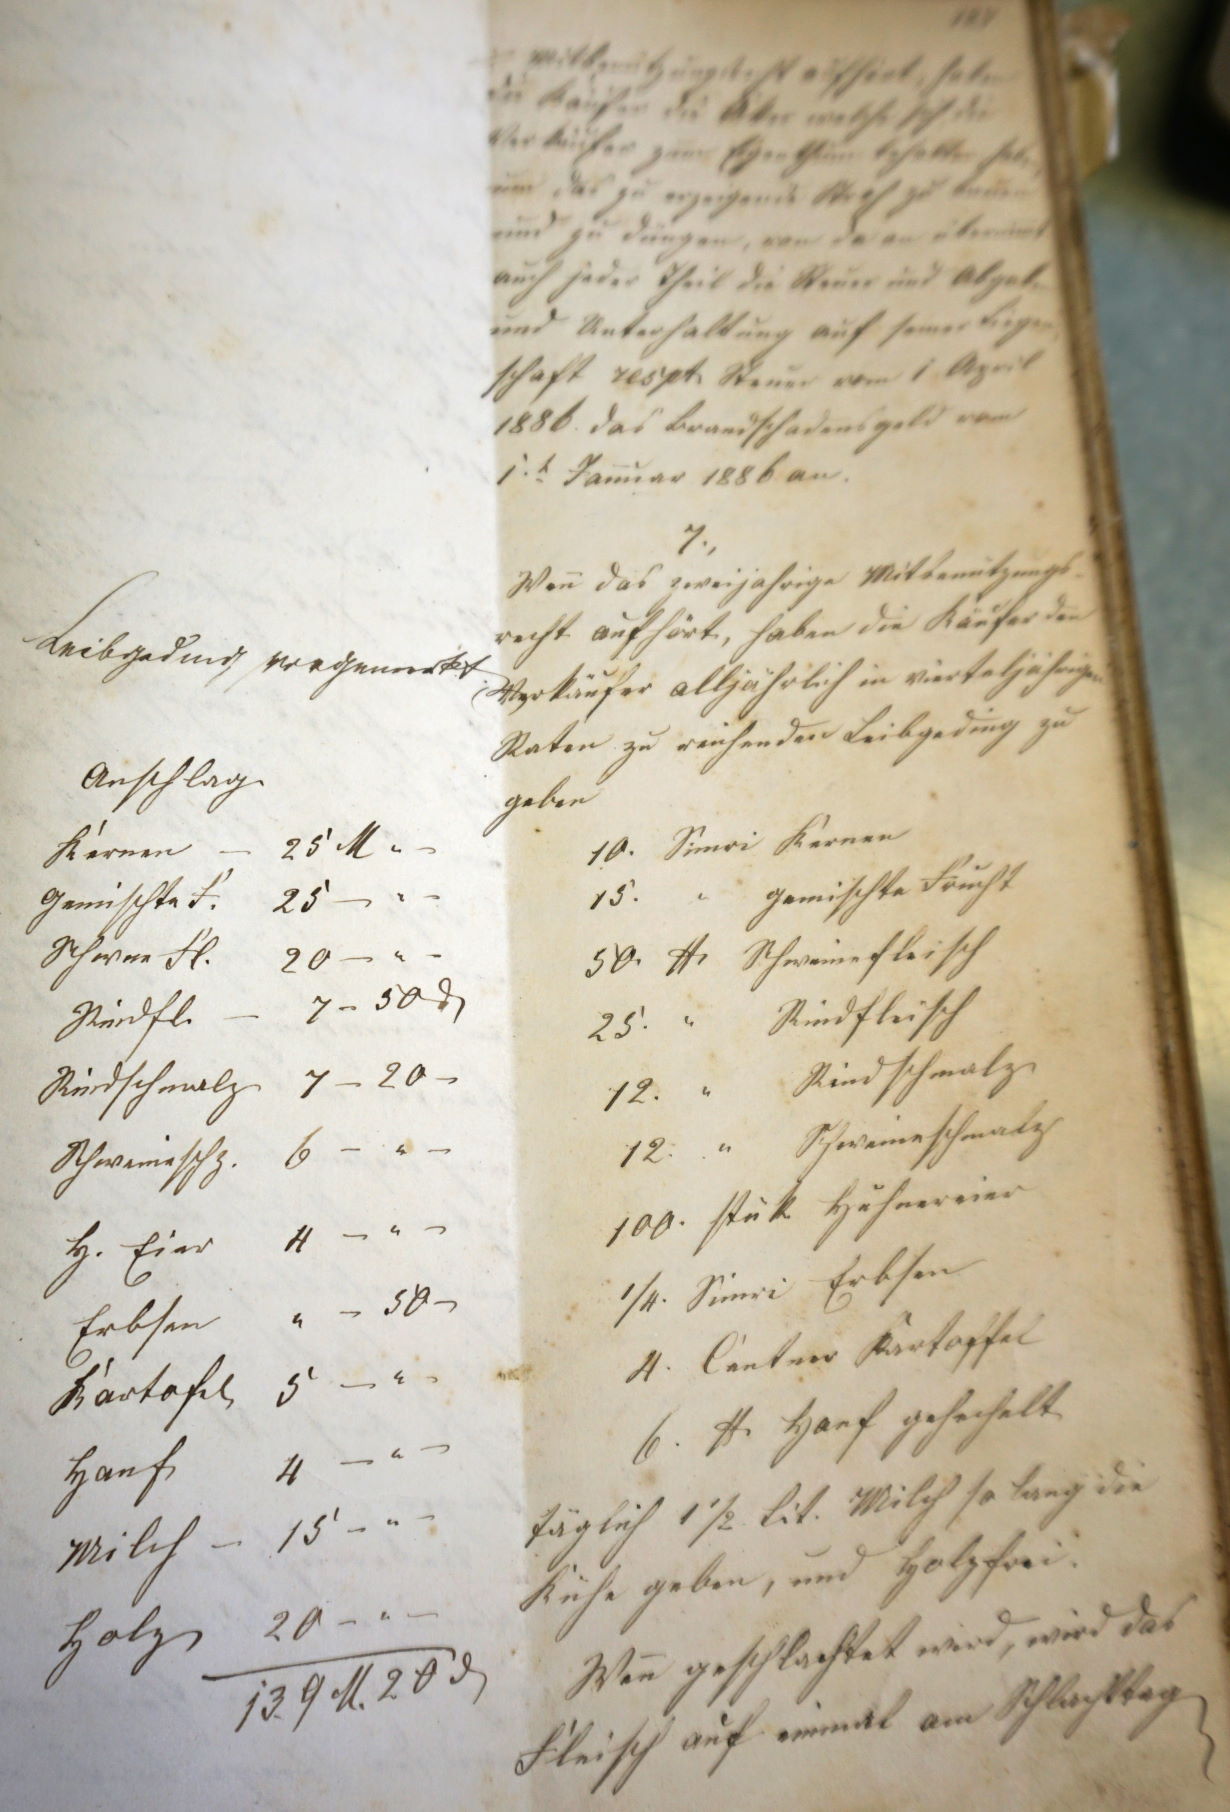 187
Mitbenutzungsrecht aufhört, haben
die Käufer die Äker welche sich die
Verkäufer zum Eigenthum behalten haben,
um das zu erzeigende Stroh zu bauen
und zu düngen, von da an übernimt
auch jeder Theil die Steuer und Abgaben
und Unterhaltung auf seiner Liegen-
schaft respt. Steuer vom 1 April
1886. das Brandschadensgeld vom
1.t Januar 1886 an.
7.,
Weñ das zweijahrige Mitbenutzungs-
recht aufhört, haben die Käufer den
Verkäufer alljährlich in vierteljährigen
Raten zu reichenden Leibgeding zu
geben
10. Simri Kernen
15. " gemischte Frucht
50. ℔ Schweinefleisch
25. " Rindfleisch
12. " Rindschmalz
12. " Schweineschmalz
100. stük Hühnereier
1/4. Simri Erbsen
4. Centner Kartoffel
6. ℔ Hanf gehechelt
täglich 1 1/2 Lit. Milch so lang die
Kühe geben, und Holzfrei.
Weñ geschlachtet wird, wird das
Fleisch auf einmal am Schlachttag
Leibgeding vorgemerkt
Anschlag
Kernen – 25 M " –
Gemischte F. 25 – " –
Schwne Fl. 20 – " –
Rindfl. – 7 – 50 ₰
Rindschmalz 7 – 20 –
Schweinschz. 6 – " –
H. Eier 4 – " –
Erbsen " – 50 –
Kartofel 5 – " –
Hanf 4 – " –
Milch – 15 – " –
Holz 20 – " –
139 M. 20 ₰